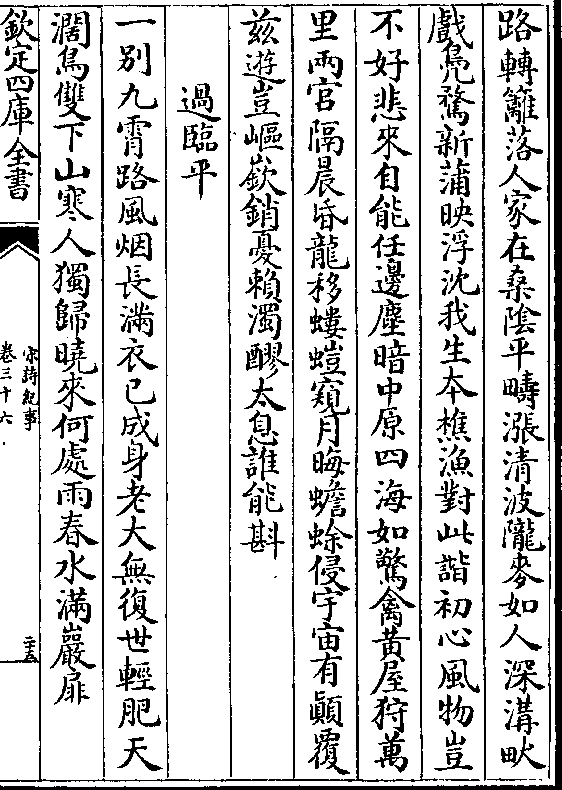 路轉籬落人家在桑陰平疇漲清波隴麥如人深溝畎
戲鳬鶩新蒲映浮沈我生本樵漁對此諧初心風物豈
不好悲來自能任邊塵暗中原四海如驚禽黄屋狩萬
里兩宫隔晨昏龍移螻螘窺月晦蟾蜍侵宇宙有顚覆
兹遊豈嶇嶔銷憂賴濁醪太息誰能斟
過臨平
一别九霄路風烟長滿衣已成身老大無復世輕肥天
濶鳥雙下山寒人獨歸曉來何處雨春水滿巖扉
欽定四庫全書
宋詩紀事
卷三十六
二十五